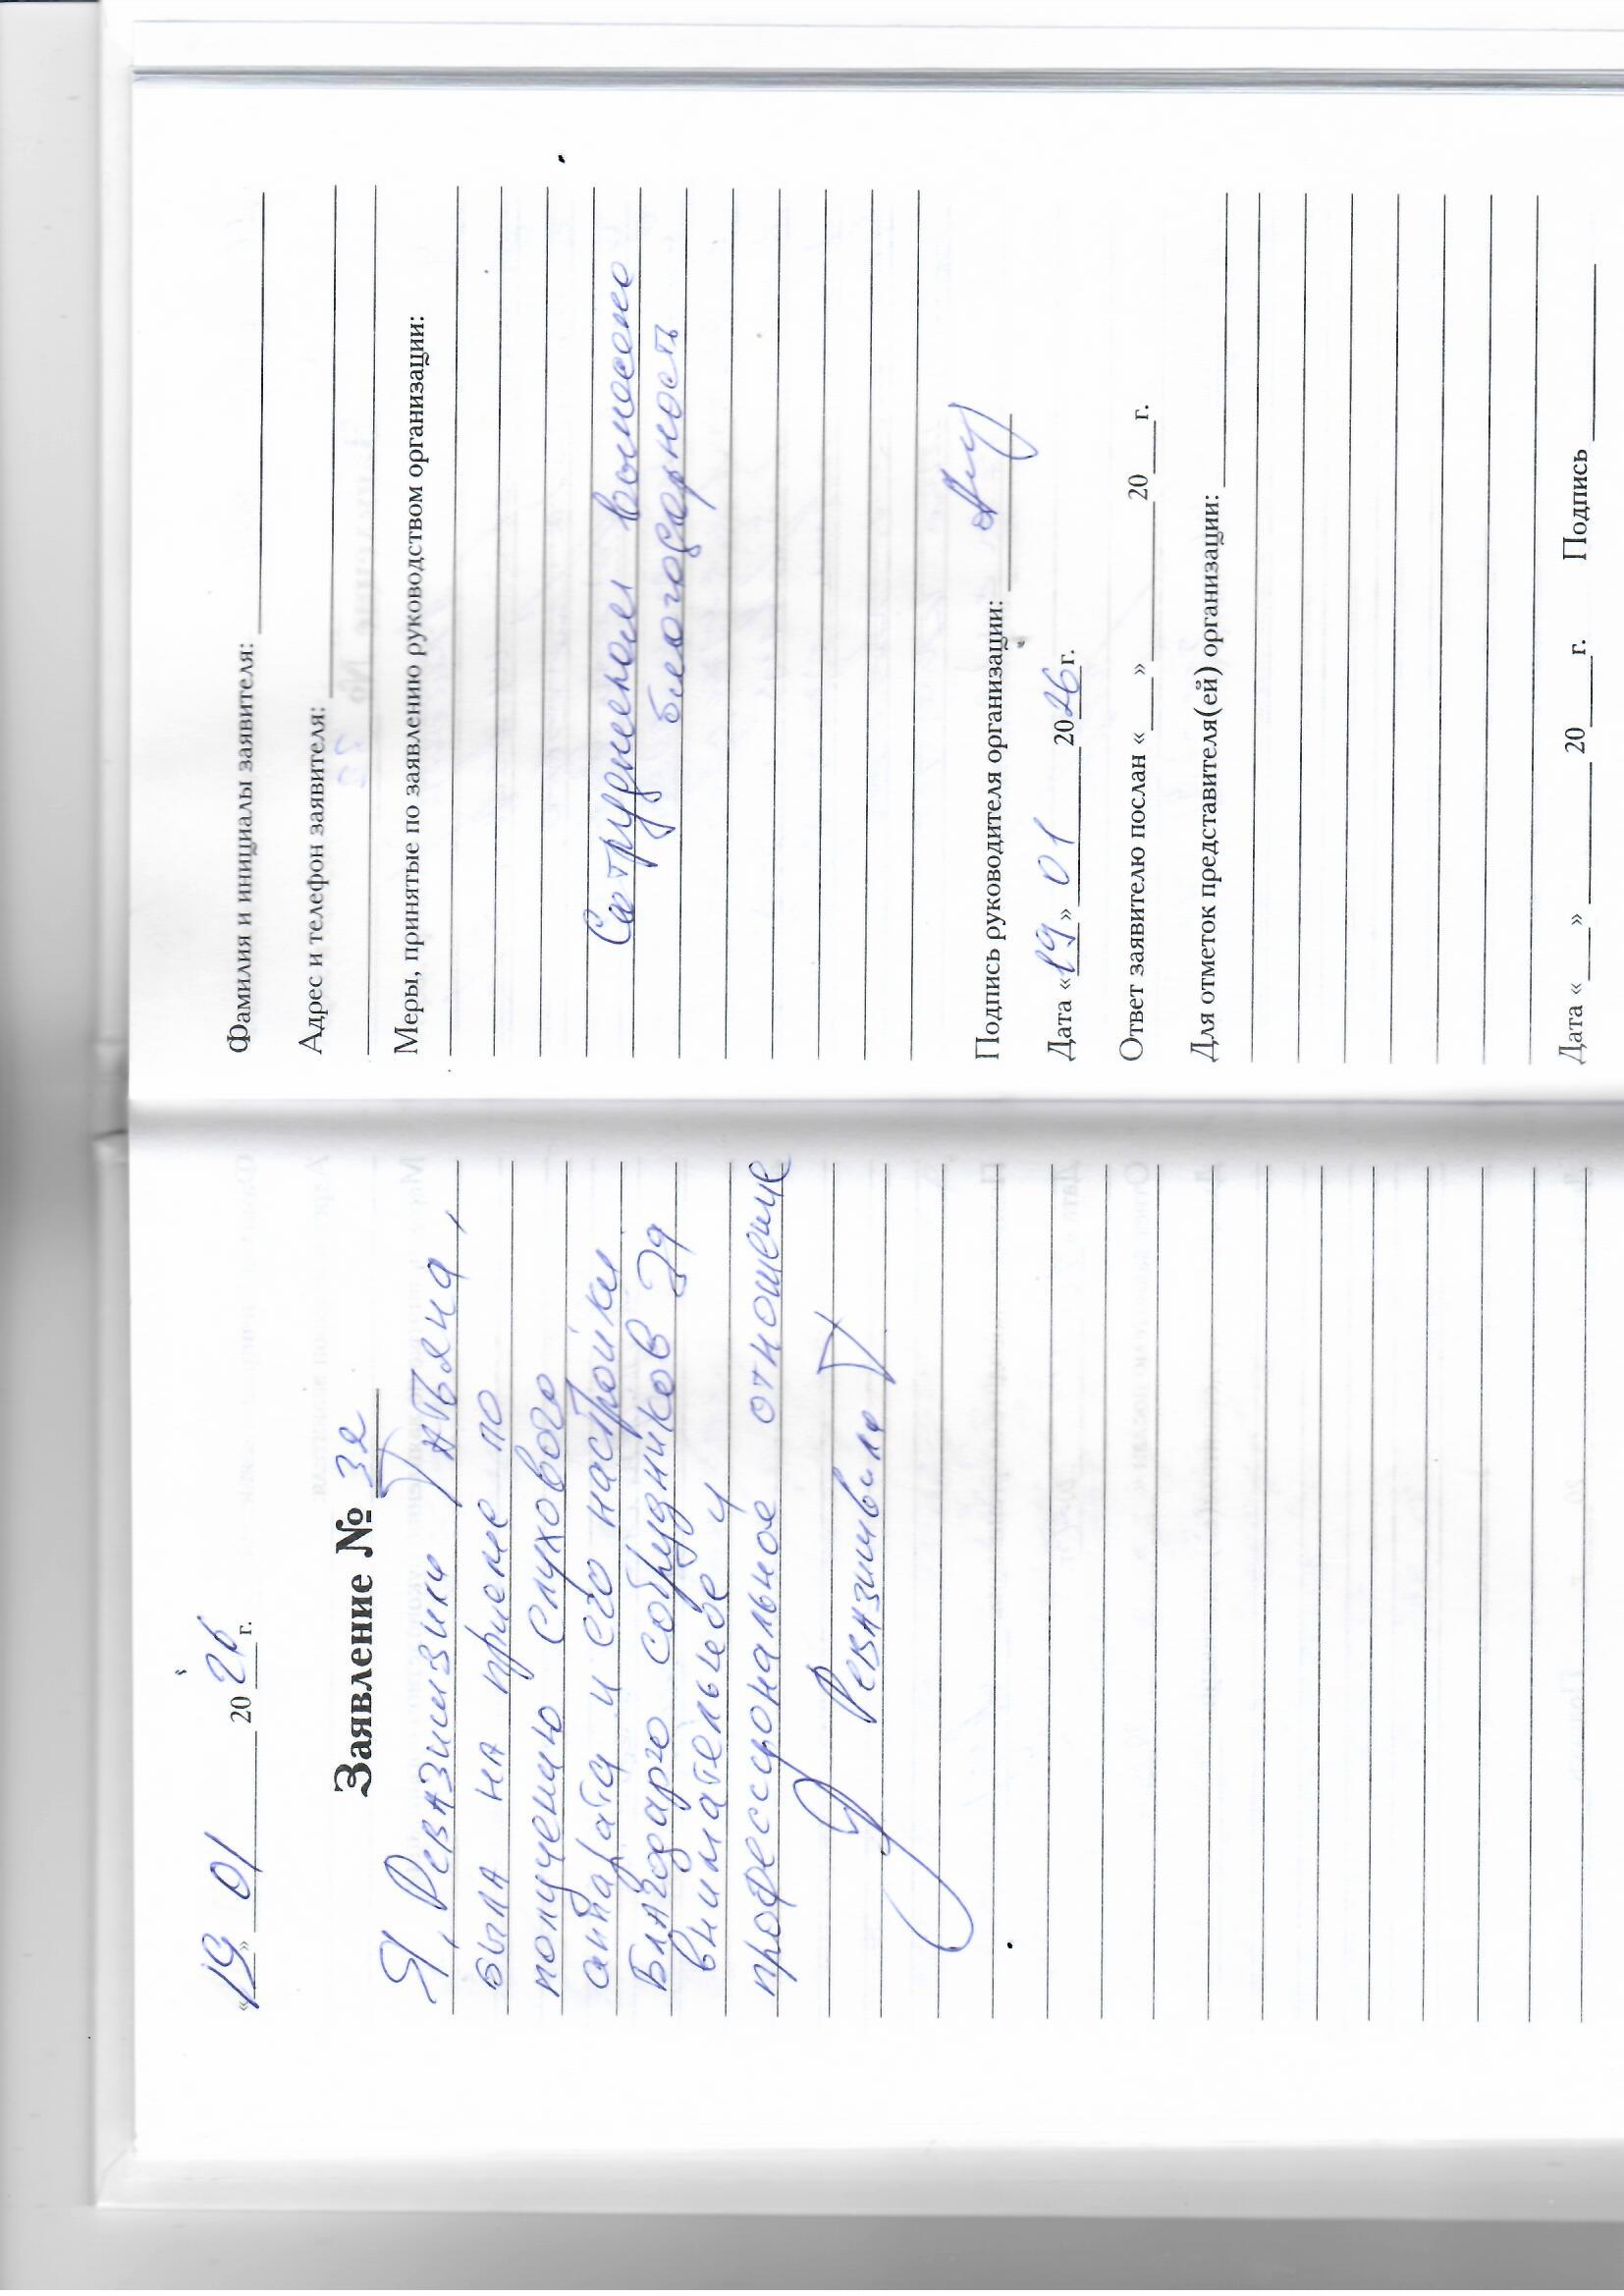 «19» 01 2026 г.
Заявление № 32
Я, Ревазишвили Татьяна,
была на приеме по
получению слухового
аппарата и его настройки
Благодарю сотрудников за
внимательное и
профессиональное отношение
Ревазишвили Т
Фамилия и инициалы заявителя:
Адрес и телефон заявителя:
Меры, принятые по заявлению руководством организации:
Сотрудникам вынесена
благодарность
Подпись руководителя организации:
Дата «19» 01 2026 г.
Ответ заявителю послан «___» ______ 20___ г.
Для отметок представителя(ей) организации:
Дата «___» ______ 20___ г. Подпись